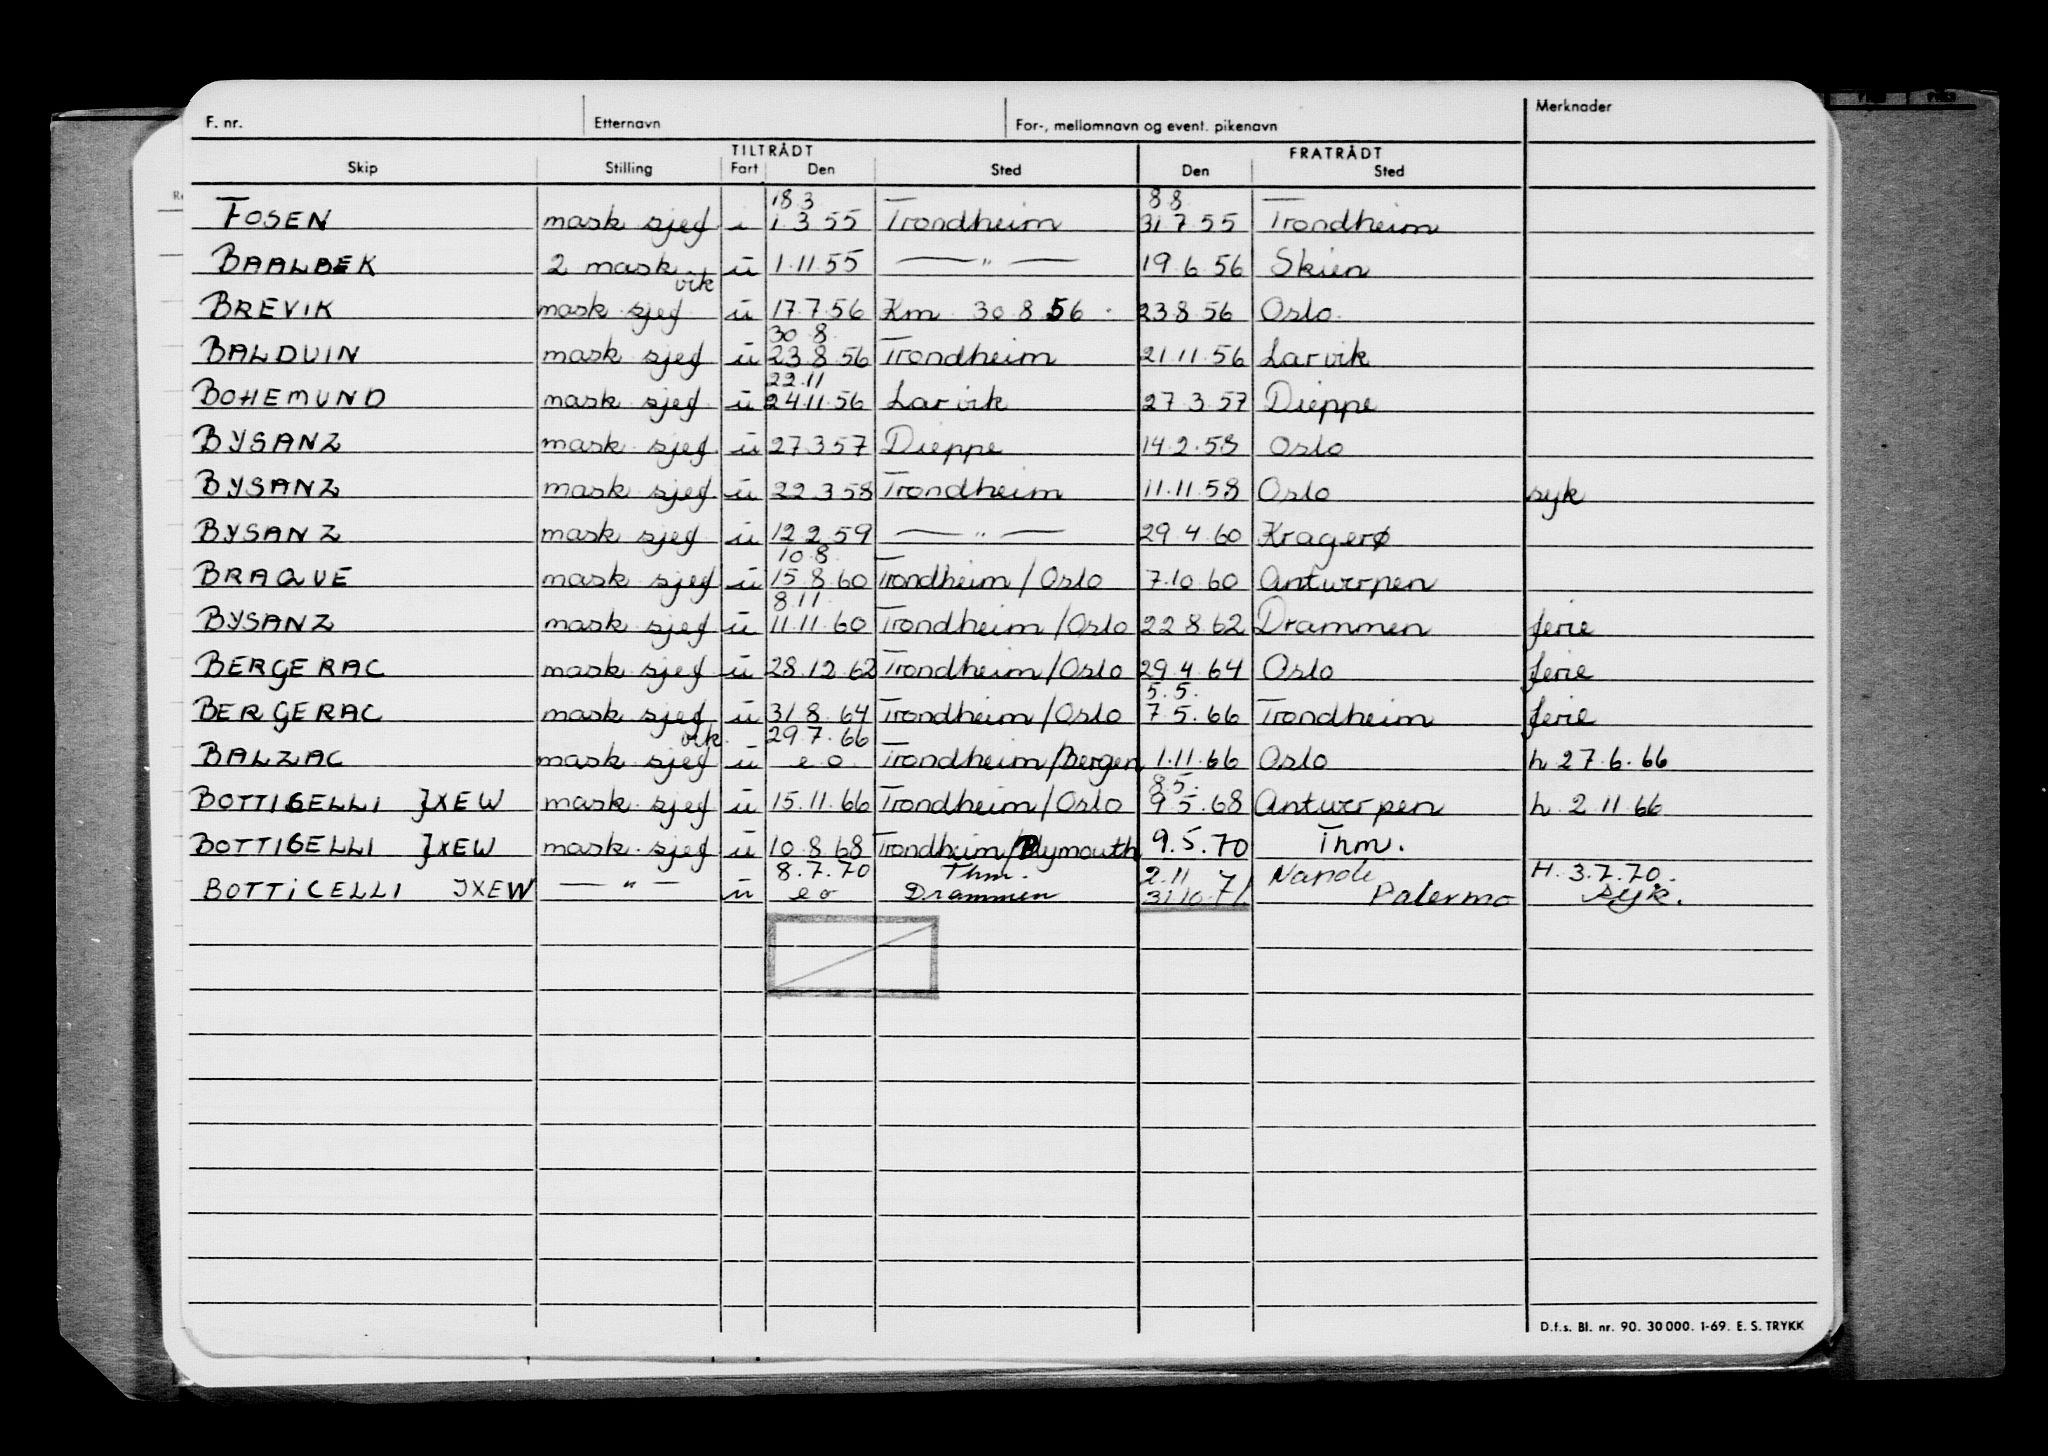 F. nr. Etternavn For-, mellomnavn og event. pikenavn Merknader
TILTRÅDT FRATRÅDT
Skip Stilling Fart Den Sted Den Sted
18.3 8 8
FOSEN mask sjef i 1.3.55 Trondheim 31.7.55 Trondheim
BAALBEK 2 mask u 1.11.55 — " — 19.6.56 Skien
vik
BREVIK mask sjef u 17.7.56 Km 30 8 56 23 8 56 Oslo
30 8
BALDUIN mask sjef u 23.8.56 Trondheim 21.11.56 Larvik
22.11
BOHEMUND mask sjef u 24.11.56 Larvik 27.3.57 Dieppe
BYSANZ mask sjef u 27.3.57 Dieppe 14.2.58 Oslo
BYSANZ mask sjef u 22.3.58 Trondheim 11.11.58 Oslo syk
BYSANZ mask sjef u 12.2.59 — " — 29.4.60 Kragerø
10.8
BRAQUE mask sjef u 15.8.60 Trondheim/Oslo 7.10.60 Antwerpen
8.11
BYSANZ mask sjef u 11.11.60 Trondheim/Oslo 22 8.62 Drammen ferie
BERGERAC mask sjef u 28.12.62 Trondheim/Oslo 29.4.64 Oslo ferie
5.5.
BERGERAC mask sjef u 31.8.64 Trondheim/Oslo 7.5.66 Trondheim ferie
vik. 29.7.66
BALZAC mask sjef u e o Trondheim/Bergen 1.11.66 Oslo h 27.6.66
8.5.
BOTTIGELLI JXEW mask sjef u 15.11.66 Trondheim/Oslo 9.5.68 Antwerpen h. 2.11.66
BOTTIGELLI JXEW mask sjef u 10.8.68 Trondheim/Plymouth 9.5.70 Thm.
8.7.70 Thm. 2.11 Napoli H. 3.7.70.
BOTTICELLI JXEW — " — u e o Drammen 31.10.71. Palermo syk.
D.f.s. Bl. nr. 90. 30 000. 1-69. E. S. TRYKK